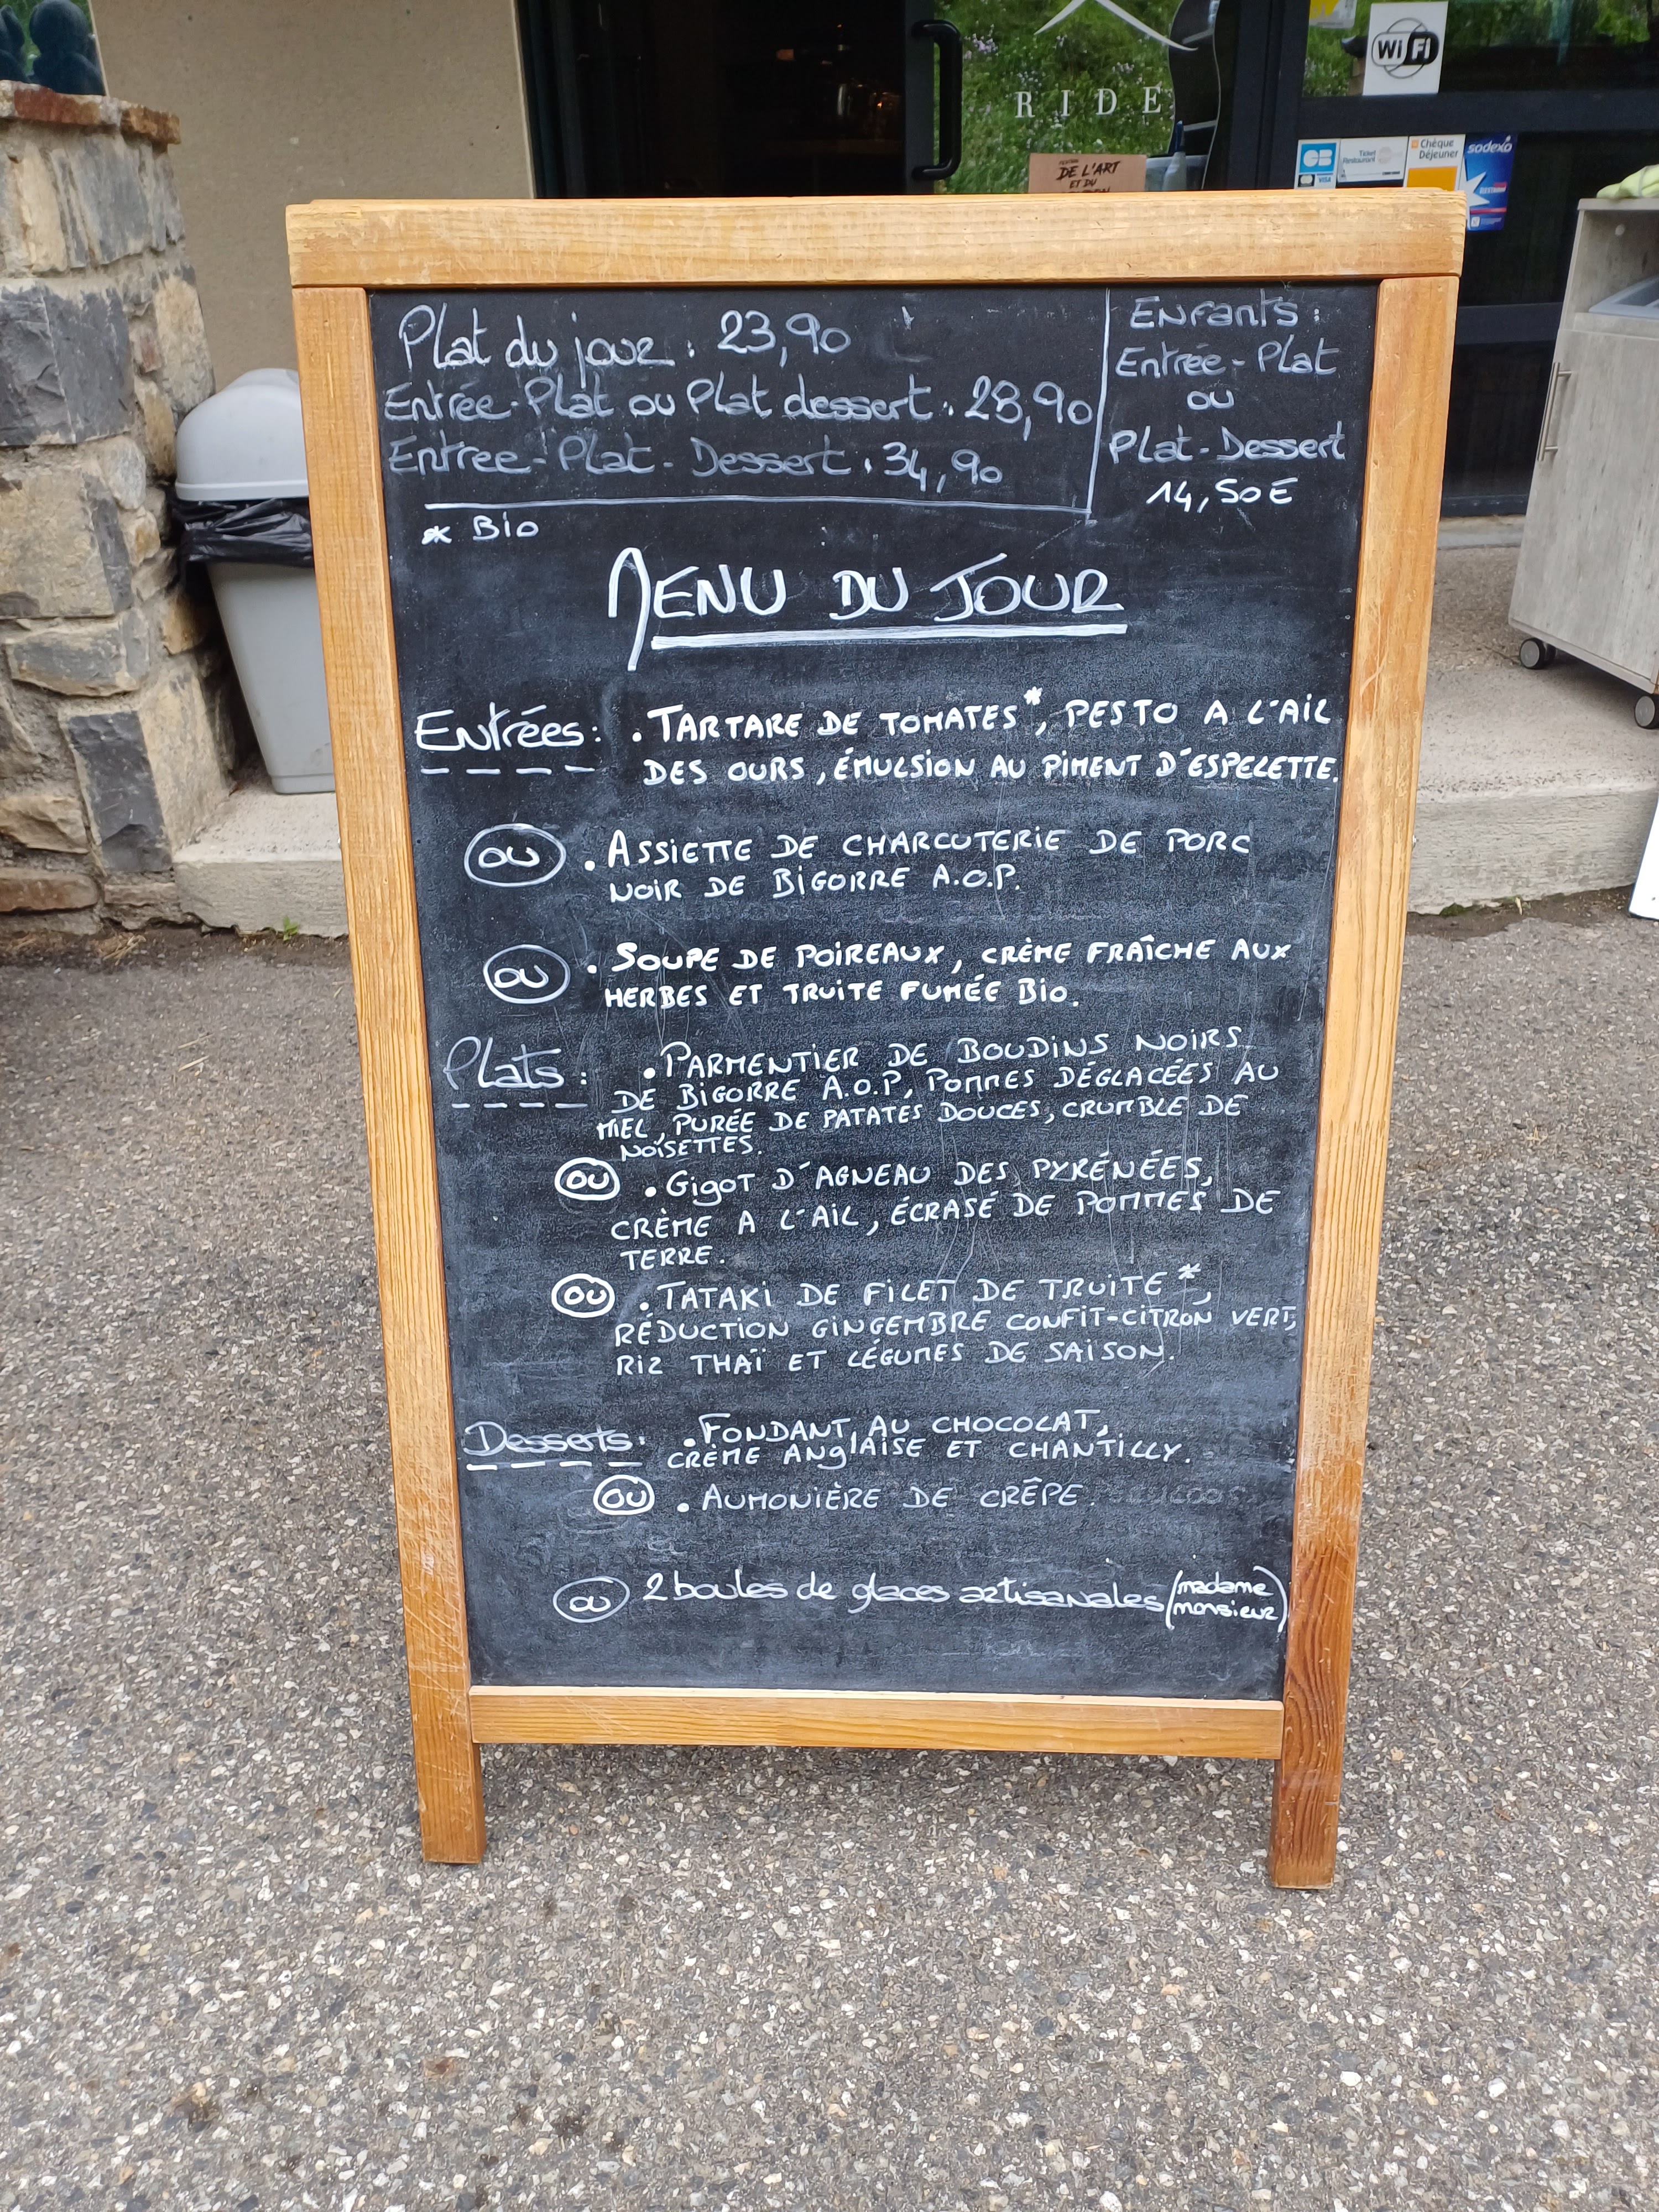 RIDE
WiFi
DE L'ART
ET DU
CB
VISA
Ticket
Restaurant
Chèque
Déjeuner
sodexo
Plat du jour : 23,90
Entrée-Plat ou Plat dessert : 28,90
Entree-Plat-Dessert : 34,90
Enfants :
Entrée-Plat
ou
Plat-Dessert
14,50E
* Bio
MENU DU JOUR
Entrées : . TARTARE DE TOMATES*, PESTO A L'AIL
DES OURS, ÉMULSION AU PIMENT D'ESPELETTE.
OU . ASSIETTE DE CHARCUTERIE DE PORC
NOIR DE BIGORRE A.O.P.
OU . SOUPE DE POIREAUX, CRÈME FRAÎCHE AUX
HERBES ET TRUITE FUMÉE Bio.
Plats : . PARMENTIER DE BOUDINS NOIRS
DE BIGORRE A.O.P, POMMES DÉGLACÉES AU
MIEL, PURÉE DE PATATES DOUCES, CRUMBLE DE
NOISETTES.
OU . GIGOT D'AGNEAU DES PYRÉNÉES,
CRÈME A L'AIL, ÉCRASÉ DE POMMES DE
TERRE.
OU . TATAKI DE FILET DE TRUITE*,
RÉDUCTION GINGEMBRE CONFIT-CITRON VERT,
RIZ THAÏ ET LÉGUMES DE SAISON.
Desserts : . FONDANT AU CHOCOLAT,
CRÈME ANGLAISE ET CHANTILLY.
OU . AUMONIÈRE DE CRÊPE.
OU 2 boules de glaces artisanales (madame
monsieur)